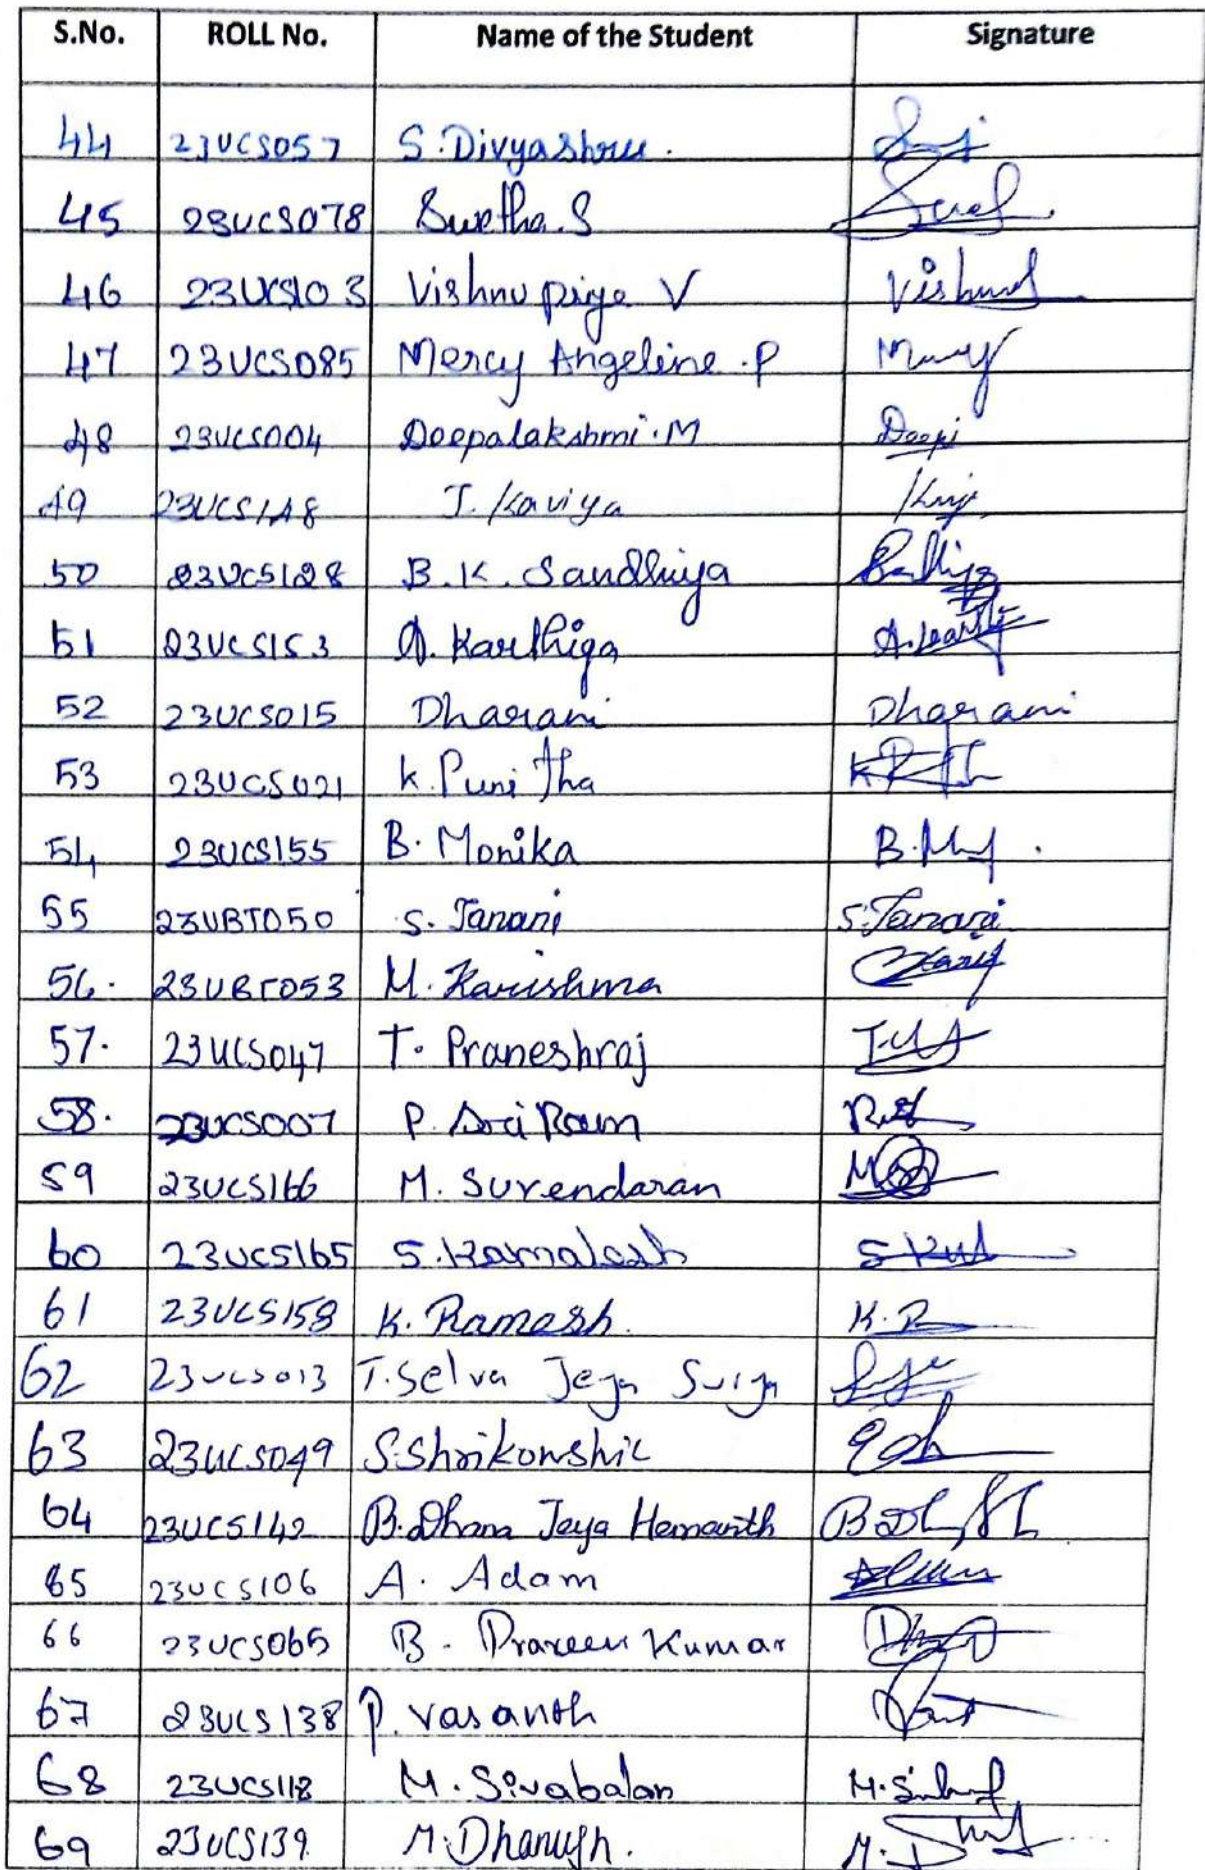 S.No. ROLL No. Name of the Student Signature
44 23UCS057 S.Divyashree.
45 23UCS078 Swetha.S
46 23UCS103 Vishnupriya V
47 23UCS085 Mercy Angeline.P
48 23UCS004 Deepalakshmi.M Deepi
49 23UCS148 J. Kaviya
50 23UCS128 B.K. Sandhiya
51 23UCS153 A. Karthiga
52 23UCS015 Dharani Dharani
53 23UCS021 K. Punitha
54 23UCS155 B. Monika
55 23UBT050 S. Janani S.Janani
56. 23UBT053 M. Karishma
57. 23UCS047 T. Praneshraj
58. 23UCS007 P. Sri Ram
59 23UCS166 M. Surendaran
60 23UCS165 S. Kamalesh
61 23UCS158 K. Ramesh.
62 23UCS013 T.Selva Jeya Surya
63 23UCS049 S.Shrikowshic
64 23UCS142 B.Dhana Jeya Hemanth
65 23UCS106 A. Adam
66 23UCS065 B. Praveen Kumar
67 23UCS138 P. Vasanth
68 23UCS118 M. Sivabalan
69 23UCS139 M.Dhanush.